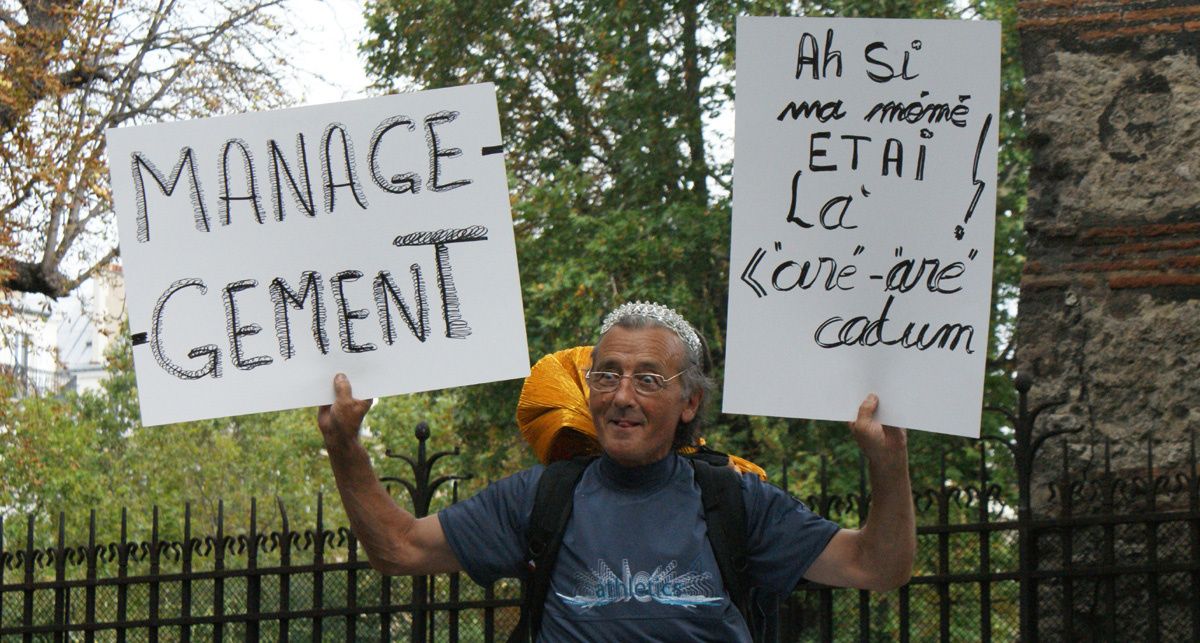 MANAGE-
-GEMENT
Ah Si
ma mémé
ETAI
Là !
«"aré"-"aré"
cadum
athletics